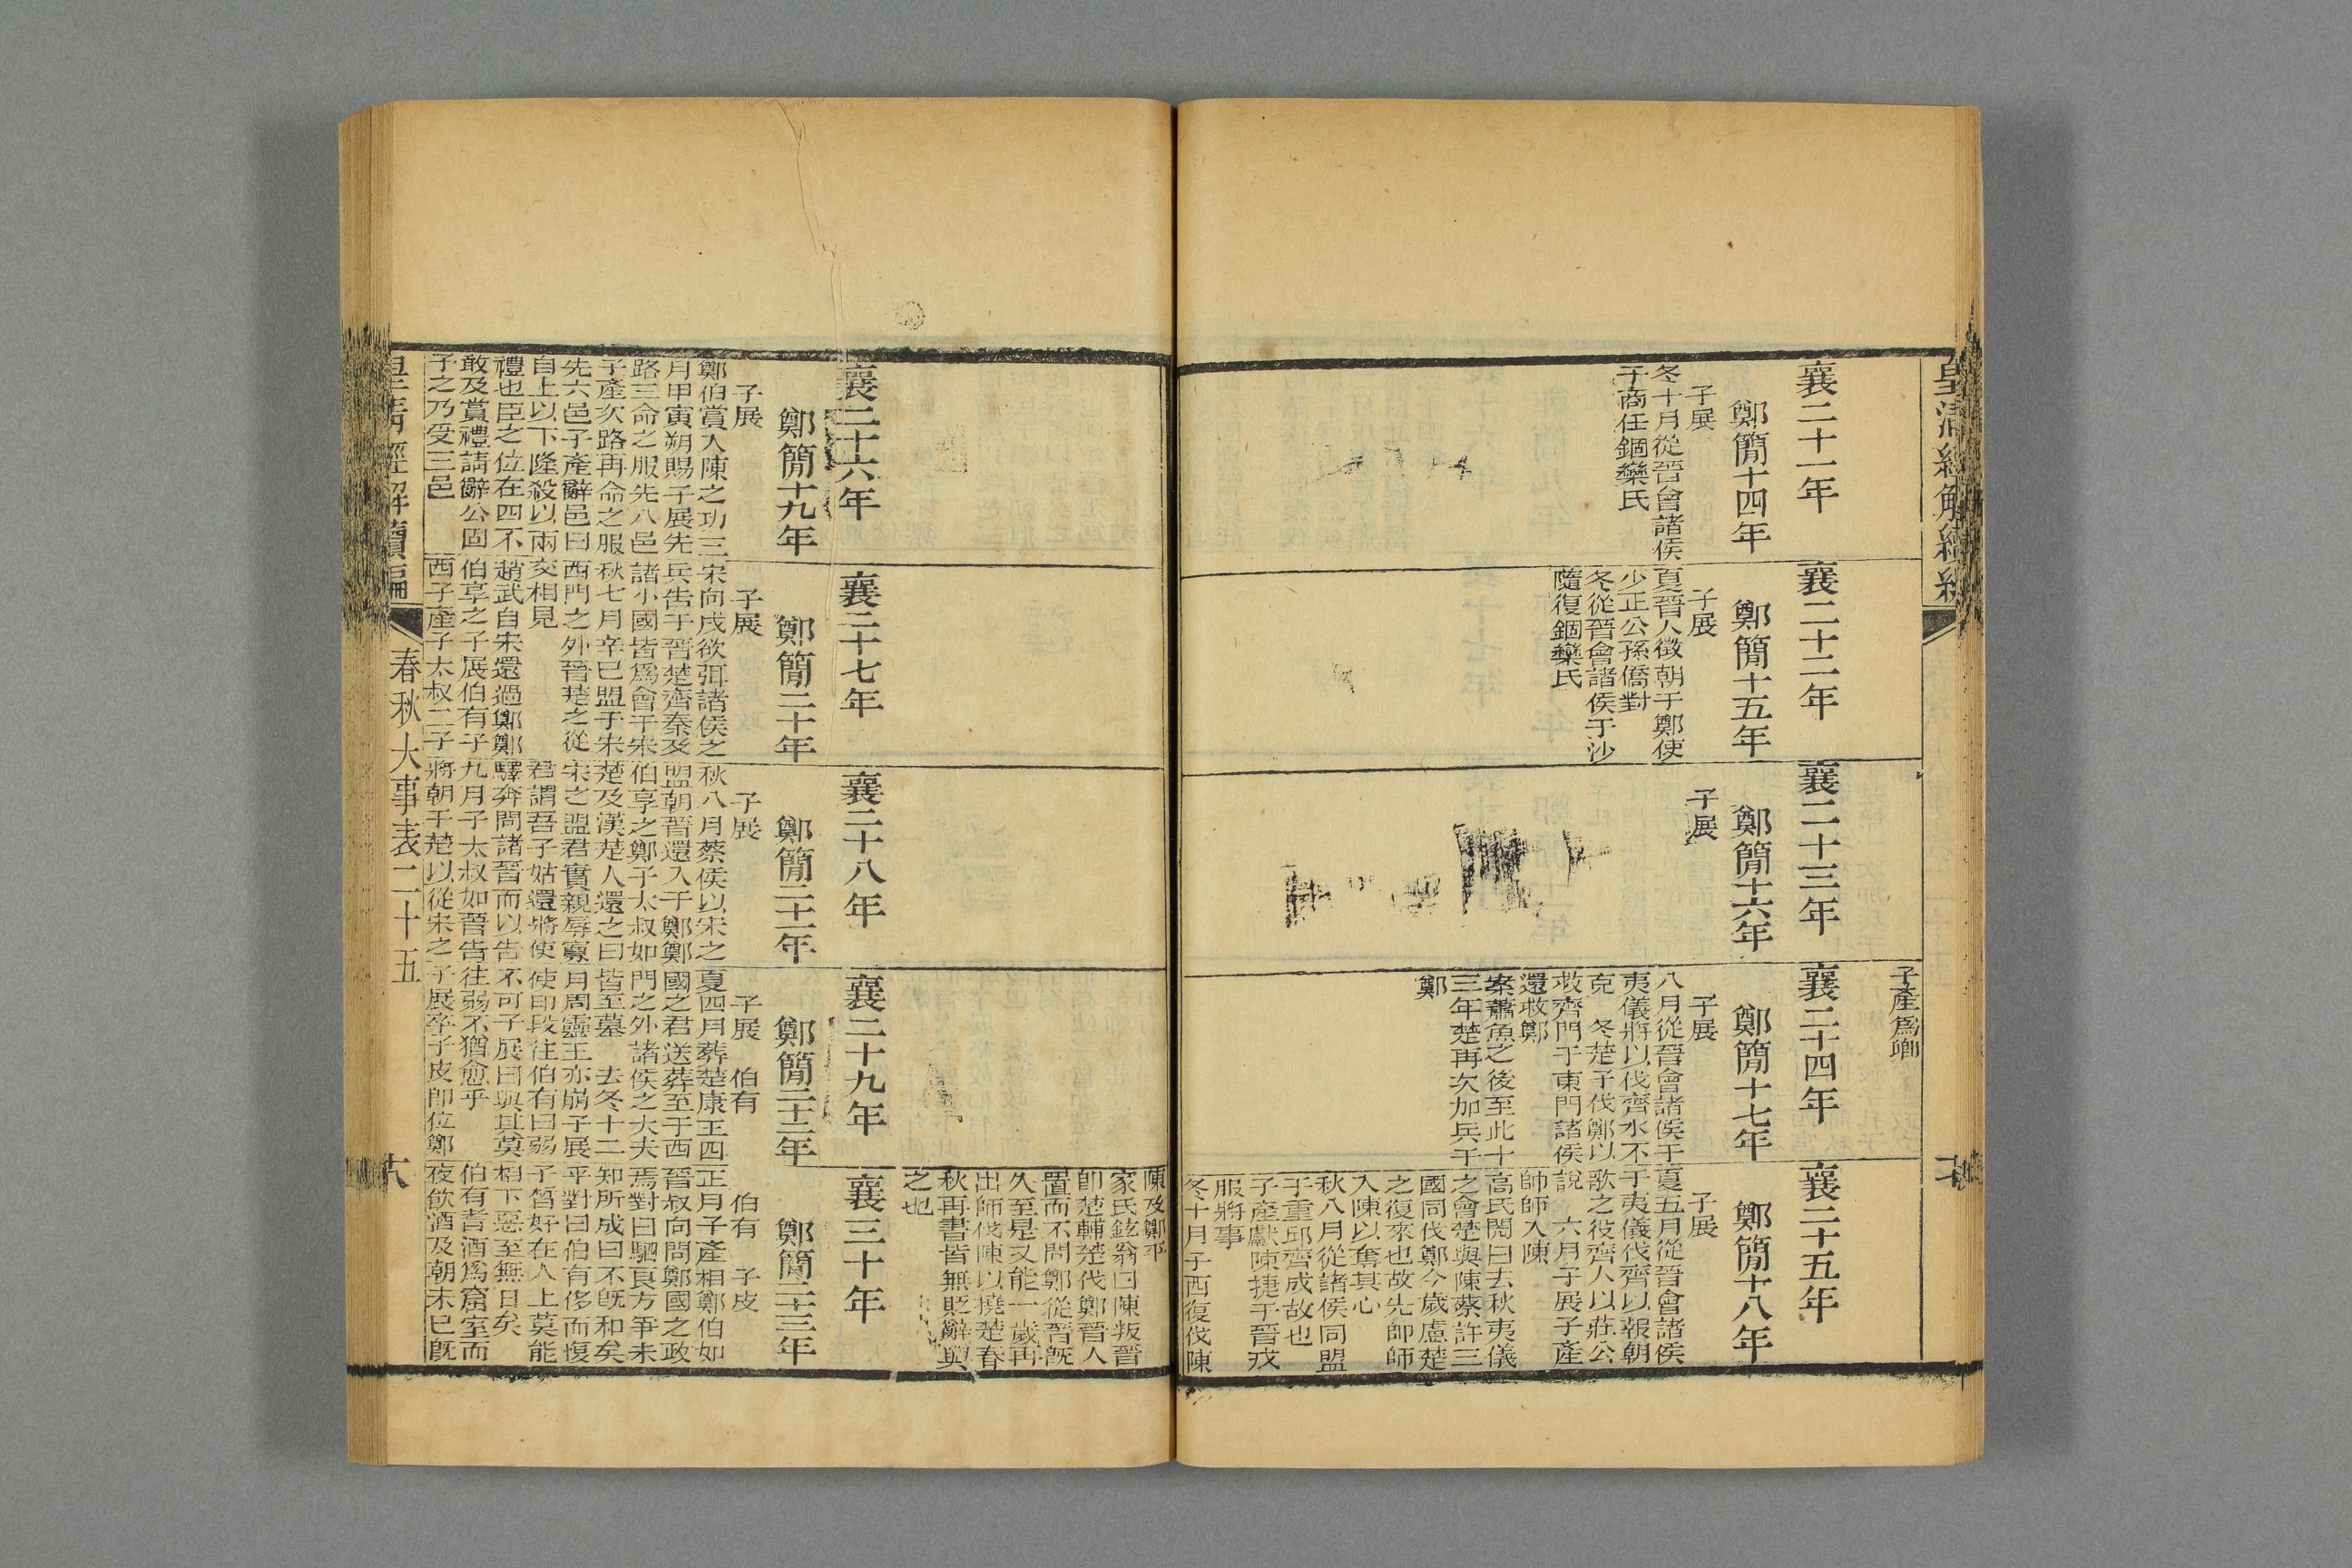 皇清經解續編
襄二十一年
鄭簡十四年
子展
冬十月從晉會諸侯
于商任錮欒氏
襄二十二年
鄭簡十五年
子展
夏晉人徵朝于鄭使
少正公孫僑對
冬從晉會諸侯于沙
隨復錮欒氏
襄二十三年
鄭簡十六年
子展
子產爲卿
襄二十四年
鄭簡十七年
子展
八月從晉會諸侯于
夷儀將以伐齊水不
克　冬楚子伐鄭以
救齊門于東門諸侯
還救鄭
案蕭魚之後至此十
三年楚再次加兵于
鄭
襄二十五年
鄭簡十八年
子展
夏五月從晉會諸侯
于夷儀伐齊以報朝
歌之役齊人以莊公
說　六月子展子產
帥師入陳
高氏閌曰去秋夷儀
之會楚與陳蔡許三
國同伐鄭今歲慮楚
之復來也故先師師
入陳以奪其心
秋八月從諸侯同盟
于重邱齊成故也
子產獻陳捷于晉戎
服將事
冬十月子西復伐陳
陳及鄭平
家氏鉉翁曰陳叛晉
卽楚輔楚伐鄭晉人
置而不問鄭從晉旣
久至是又能一歲再
出師伐陳以撓楚春
秋再書皆無貶辭與
之也
襄二十六年
鄭簡十九年
子展
鄭伯賞入陳之功三
月甲寅朔賜子展先
路三命之服先八邑
子產次路再命之服
先六邑子產辭邑曰
自上以下隆殺以兩
禮也臣之位在四不
敢及賞禮請辭公固
子之乃受三邑
襄二十七年
鄭簡二十年
子展
宋向戌欲弭諸侯之
兵告于晉楚齊秦及
諸小國皆爲會于宋
秋七月辛巳盟于宋
西門之外晉楚之從
交相見
趙武自宋還過鄭鄭
伯享之子展伯有子
西子產子太叔二子
襄二十八年
鄭簡二十一年
子展
秋八月蔡侯以宋之
盟朝晉還入于鄭鄭
伯享之鄭子太叔如
楚及漢楚人還之曰
宋之盟君實親辱寡
君謂吾子姑還將使
驛奔問諸晉而以告
九月子太叔如晉告
將朝于楚以從宋之
襄二十九年
鄭簡二十二年
子展　伯有
夏四月葬楚康王四
國之君送葬至于西
門之外諸侯之大夫
皆至墓　去冬十二
月周靈王亦崩子展
使印段往伯有曰弱
不可子展曰與其莫
往弱不猶愈乎
子展卒子皮即位鄭
襄三十年
鄭簡二十三年
伯有　子皮
正月子產相鄭伯如
晉叔向問鄭國之政
焉對曰駟良方爭未
知所成曰不旣和矣
乎對曰伯有侈而愎
子晳好在人上莫能
相下惡至無日矣
伯有耆酒爲窟室而
夜飮酒及朝未已旣
皇清經解續編
春秋大事表二十五
六